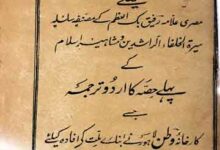 مصری علامہ رفیق بک اعظم کے مصنفہ سلسلہ
سیرۃ الخلفاء الراشدین و مشاہیر اسلام کے
پہلے حصہ کا اردو ترجمہ
جسے
کارخانہ وطن لاہور نے بنائے ملت کی افادہ کیلئے